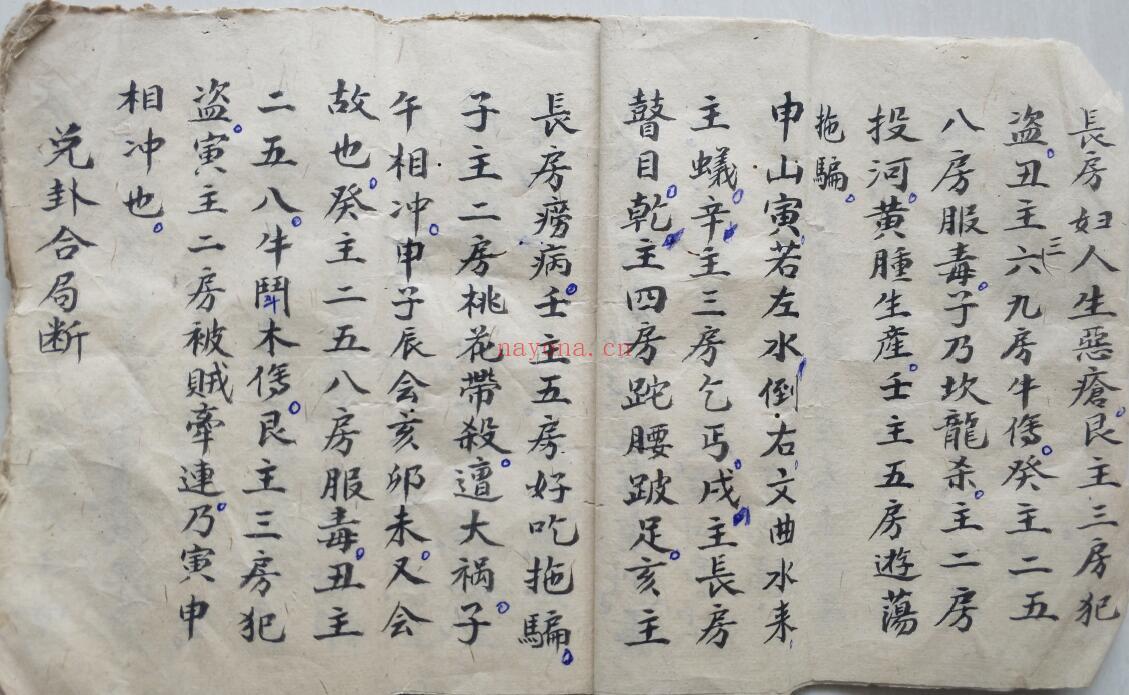 長房妇人生惡瘡。艮主三房犯
盗。丑主三六九房牛傷。癸主二五
八房服毒。子乃坎龍杀。主二房
投河。黄腫生産。壬主五房遊蕩
拖騙。
申山寅若左水倒右文曲水来
主蟻。辛主三房乞丐。戌主長房
瞽目。乾主四房跎腰跛足。亥主
長房癆病。壬主五房好吃拖騙。
子主二房桃花帶殺。遭大祸。子
午相冲。申子辰会亥卯未。又会
故也。癸主二五八房服毒。丑主
二五八。牛鬪斗木傷。艮主三房犯
盗。寅主二房被賊牽連。乃寅申
相冲也。
兑卦合局断
nayona.cn